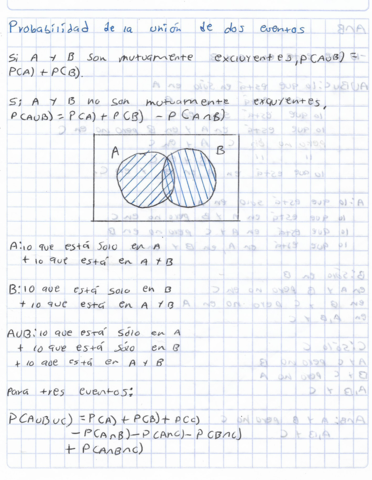 Probabilidad de la unión de dos eventos
Si A y B son mutuamente excluyentes, P(A∪B) =
P(A) + P(B).
Si A y B no son mutuamente excluyentes,
P(A∪B) = P(A) + P(B) - P(A∩B)
A B
A: lo que está solo en A
+ lo que está en A y B
B: lo que está solo en B
+ lo que está en A y B
A∪B: lo que está sólo en A
+ lo que está sólo en B
+ lo que está en A y B
Para tres eventos:
P(A∪B∪C) = P(A) + P(B) + P(C)
- P(A∩B) - P(A∩C) - P(B∩C)
+ P(A∩B∩C)